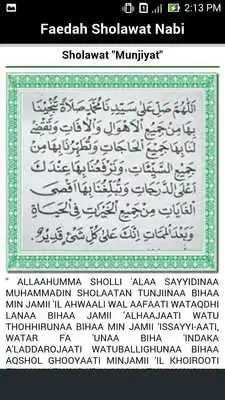 2:13 PM
Faedah Sholawat Nabi
Sholawat "Munjiyat"
اَللّٰهُمَّ صَلِّ عَلَى سَيِّدِنَا مُحَمَّدٍ صَلَاةً تُنْجِيْنَا
بِهَا مِنْ جَمِيْعِ الْاَهْوَالِ وَالْاٰفَاتِ وَتَقْضِيْ
لَنَا بِهَا جَمِيْعَ الْحَاجَاتِ وَتُطَهِّرُنَا بِهَا مِنْ
جَمِيْعِ السَّيِّئَاتِ، وَتَرْفَعُنَا بِهَا عِنْدَكَ
اَعْلَى الدَّرَجَاتِ وَتُبَلِّغُنَا بِهَا اَقْصَى
الْغَايَاتِ مِنْ جَمِيْعِ الْخَيْرَاتِ فِي الْحَيَاةِ
وَبَعْدَ الْمَمَاتِ اِنَّكَ عَلَى كُلِّ شَيْءٍ قَدِيْرٌ
" ALLAAHUMMA SHOLLI 'ALAA SAYYIDINAA
MUHAMMADIN SHOLAATAN TUNJIINAA BIHAA
MIN JAMII 'IL AHWAALI WAL AAFAATI WATAQDHI
LANAA BIHAA JAMII 'ALHAAJAATI WATU
THOHHIRUNAA BIHAA MIN JAMII 'ISSAYYI-AATI,
WATAR FA 'UNAA BIHA 'INDAKA
A'LADDAROJAATI WATUBALLIGHUNAA BIHAA
AQSHOL GHOOYAATI MINJAMII 'IL KHOIROOTI